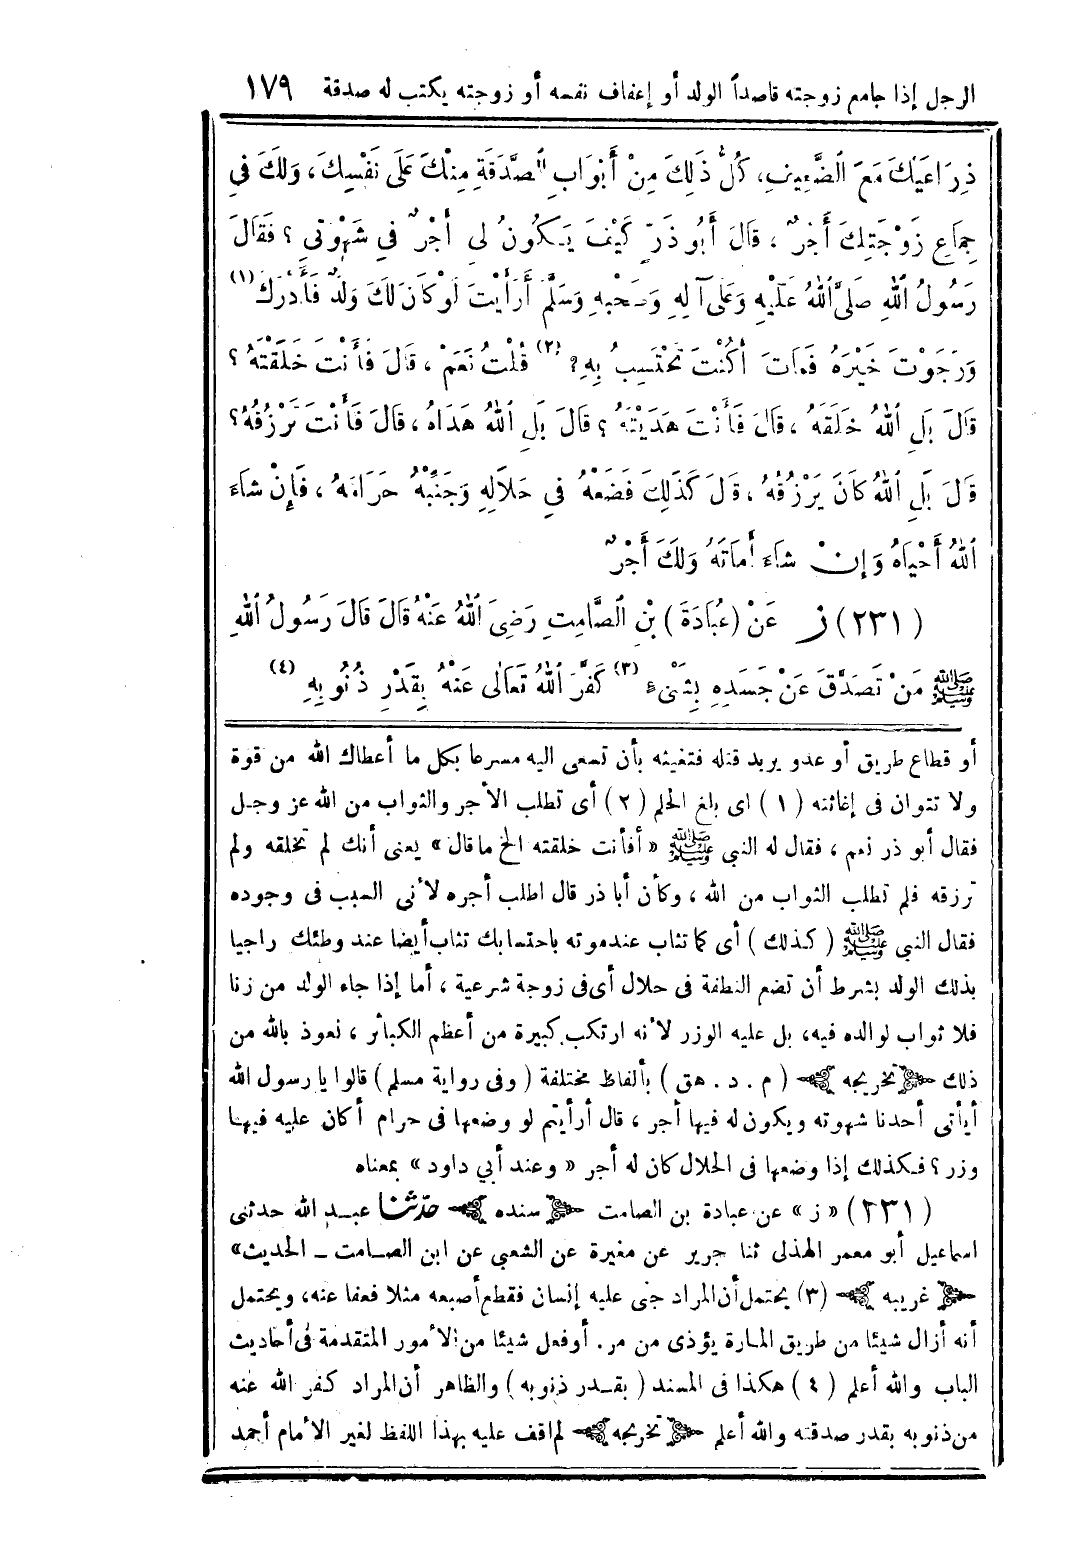 الرجل إذا جامع زوجته قاصداً الولد أو إعفاف نفسه أو زوجته يكتب له صدقة ١٧٩
ذِرَاعَيْكَ مَعَ الضَّعِيفِ، كُلُّ ذَلِكَ مِنْ أَبْوَابِ الصَّدَقَةِ مِنْكَ عَلَى نَفْسِكَ، وَلَكَ فِي
جِمَاعِ زَوْجَتِكَ أَجْرٌ ، قَالَ أَبُو ذَرٍّ كَيْفَ يَكُونُ لِي أَجْرٌ فِي شَهْوَتِي ؟ فَقَالَ
رَسُولُ اللهِ صَلَّى اللهُ عَلَيْهِ وَعَلَى آلِهِ وَصَحْبِهِ وَسَلَّمَ أَرَأَيْتَ لَوْ كَانَ لَكَ وَلَدٌ فَأَدْرَكَ (١)
وَرَجَوْتَ خَيْرَهُ فَمَاتَ أَكُنْتَ تَحْتَسِبُ بِهِ؟ (٢) قُلْتُ نَعَمْ ، قَالَ فَأَنْتَ خَلَقْتَهُ ؟
قَالَ بَلِ اللهُ خَلَقَهُ ، قَالَ فَأَنْتَ هَدَيْتَهُ ؟ قَالَ بَلِ اللهُ هَدَاهُ ، قَالَ فَأَنْتَ تَرْزُقُهُ؟
قَالَ بَلِ اللهُ كَانَ يَرْزُقُهُ ، قَالَ كَذَلِكَ فَضَعْهُ فِي حَلَالِهِ وَجَنِّبْهُ حَرَامَهُ ، فَإِنْ شَاءَ
اللهُ أَحْيَاهُ وَإِنْ شَاءَ أَمَاتَهُ وَلَكَ أَجْرٌ
(٢٣١) ز عَنْ (عُبَادَةَ) بْنِ الصَّامِتِ رَضِيَ اللهُ عَنْهُ قَالَ قَالَ رَسُولُ اللهِ
ﷺ مَنْ تَصَدَّقَ عَنْ جَسَدِهِ بِشَيْءٍ (٣) كَفَّرَ اللهُ تَعَالَى عَنْهُ بِقَدْرِ ذُنُوبِهِ (٤)
أو قطاع طريق أو عدو يريد قتله فتغيثه بأن تسعى اليه مسرعا بكل ما أعطاك الله من قوة
ولا تتوان فى إغاثته (١) اى بلغ الحلم (٢) أى تطلب الأجر والثواب من الله عز وجل
فقال أبو ذر نعم ، فقال له النبي ﷺ « أفأنت خلقته الخ ما قال » يعنى أنك لم تخلقه ولم
ترزقه فلم تطلب الثواب من الله ، وكأن أبا ذر قال اطلب أجره لأنى السبب فى وجوده
فقال النبي ﷺ (كذلك) أى كما تثاب عند موته باحتسابك تثاب أيضا عند وطئك راجيا
بذلك الولد بشرط أن تضع النطفة فى حلال أى فى زوجة شرعية ، أما إذا جاء الولد من زنا
فلا ثواب لوالده فيه، بل عليه الوزر لأنه ارتكب كبيرة من أعظم الكبائر ، نعوذ بالله من
ذلك تخريجه (م . د . هق) بألفاظ مختلفة (وفى رواية مسلم) قالوا يا رسول الله
أيأتى أحدنا شهوته ويكون له فيها أجر ، قال أرأيتم لو وضعها فى حرام أكان عليه فيها
وزر ؟ فكذلك إذا وضعها فى الحلال كان له أجر « وعند أبي داود » بمعناه
(٢٣١) « ز » عن عبادة بن الصامت سنده حدّثنا عبد الله حدثنى
اسماعيل أبو معمر الهذلى ثنا جرير عن مغيرة عن الشعبي عن ابن الصامت ــ الحديث»
غريبه (٣) يحتمل أن المراد جنى عليه إنسان فقطع أصبعه مثلا فعفا عنه، ويحتمل
أنه أزال شيئا من طريق المارة يؤذى من مر. أوفعل شيئا من الأمور المتقدمة فى أحاديث
الباب والله أعلم (٤) هكذا فى المسند (بقدر ذنوبه) والظاهر أن المراد كفر الله عنه
من ذنوبه بقدر صدقته والله أعلم تخريجه لم اقف عليه بهذا اللفظ لغير الأمام أحمد